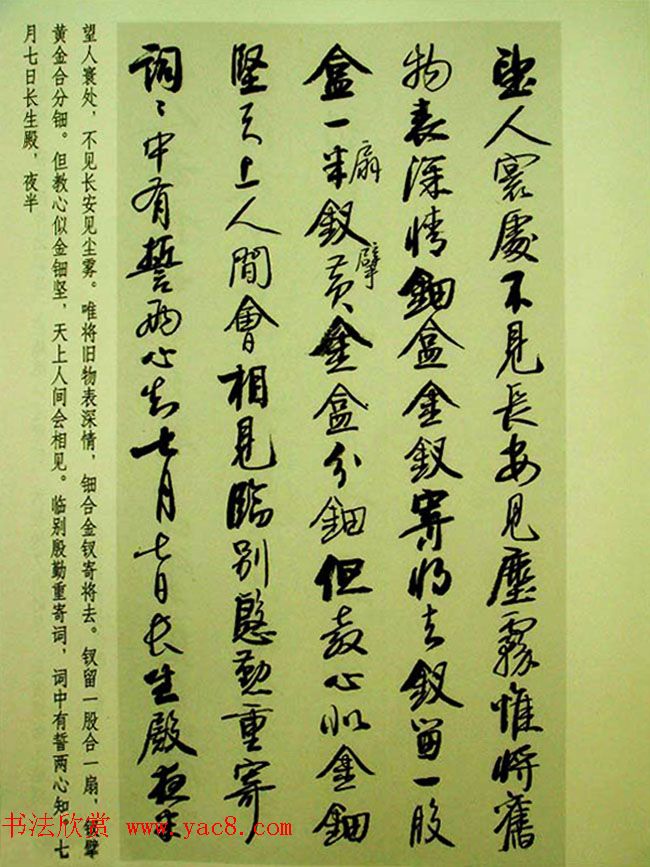 望人寰處不見長安見塵霧惟將舊
物表深情鈿盒金釵寄將去釵留一股
盒一半釵黃金盒分鈿但教心似金鈿
扇
擘
堅天上人間會相見臨別慇勤重寄
詞〻中有誓兩心知七月七日長生殿夜半
望人寰处，不见长安见尘雾。唯将旧物表深情，钿合金钗寄将去。钗留一股合一扇，钗擘
黄金合分钿。但教心似金钿坚，天上人间会相见。临别殷勤重寄词，词中有誓两心知。七
月七日长生殿，夜半
书法欣赏 www.yac8.com